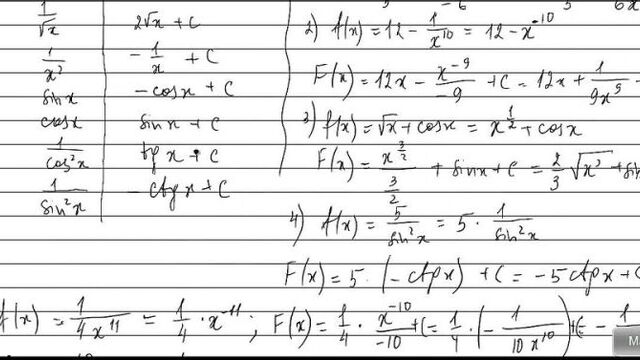 1/√x 2√x + C
1/x² - 1/x + C
sin x - cos x + C
cos x sin x + C
1/cos²x tg x + C
1/sin²x - ctg x + C
2) f(x) = 12 - 1/x¹⁰ = 12 - x⁻¹⁰
F(x) = 12x - x⁻⁹/-9 + C = 12x + 1/9x⁹
3) f(x) = √x + cos x = x^(1/2) + cos x
F(x) = x^(3/2)/(3/2) + sin x + C = 2/3 √x³ + sin
4) f(x) = 5/sin²x = 5 · 1/sin²x
F(x) = 5 · (- ctg x) + C = -5 ctg x + C
f(x) = 1/4x¹¹ = 1/4 · x⁻¹¹; F(x) = 1/4 · x⁻¹⁰/-10 + C = 1/4 · (- 1/10x¹⁰) + C = - 1